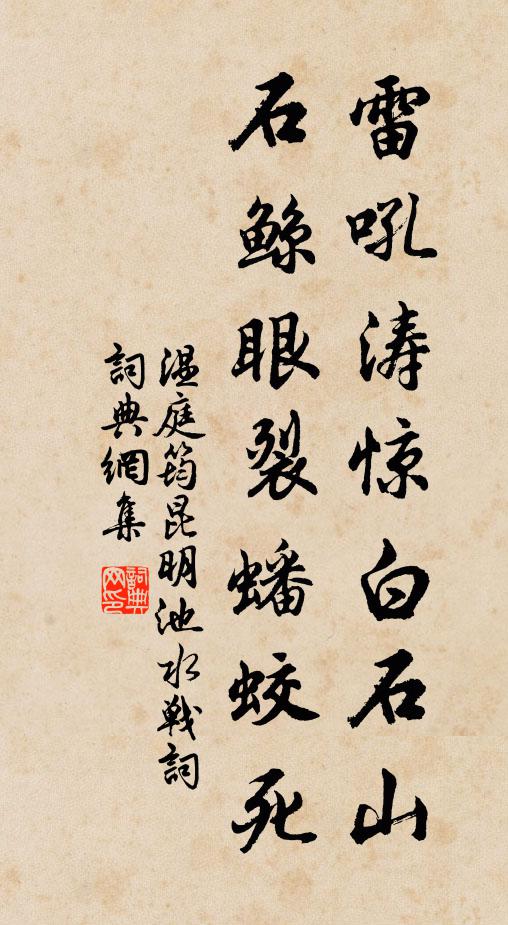 雷吼涛惊白石山
石鲸眼裂蟠蛟死
温庭筠昆明池水戦詞
詞典網集
詞典网印